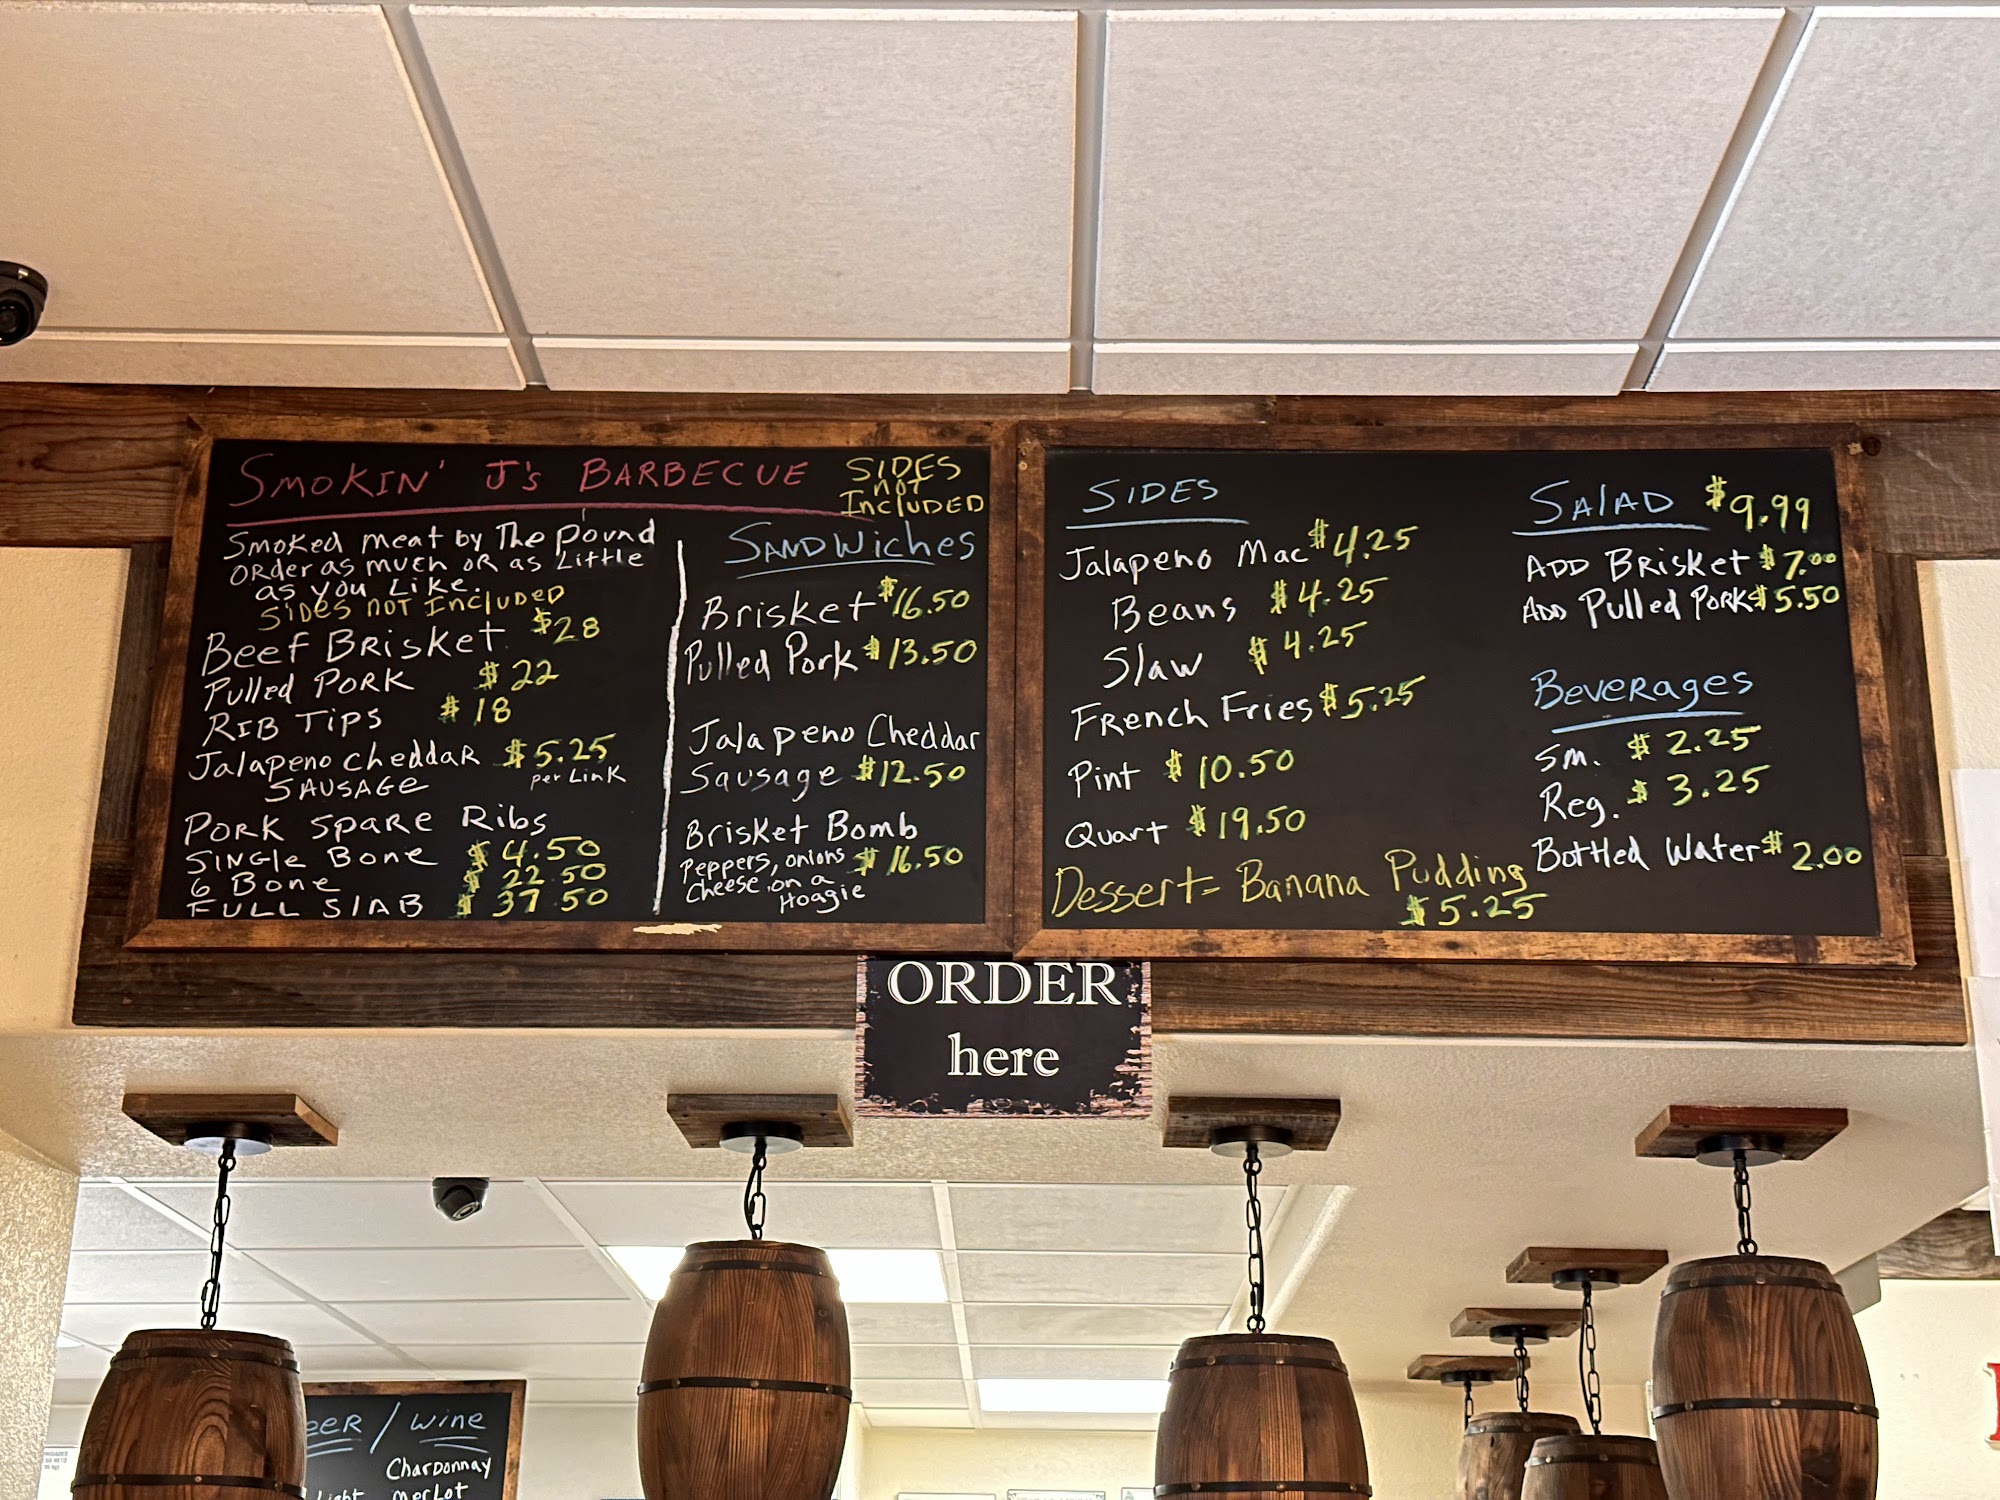 SMOKIN' J's BARBECUE
SIDES
not
IncLUDED
Smoked meat by The Pound
ORder as much OR as Little
as you Like.
Sides not Included
Beef Brisket $28
Pulled PORK $22
RIB TIPS $18
Jalapeno cheddaR $5.25
SAUSAGe per Link
PORK SPARE Ribs
SINGLe Bone $4.50
6 Bone $22.50
FULL SlAB $37.50
SANDWiches
Brisket $16.50
Pulled Pork $13.50
Jalapeno Cheddar
Sausage $12.50
Brisket Bomb
Peppers, onions $16.50
Cheese on a
Hoagie
SIDES
Jalapeno Mac $4.25
Beans $4.25
Slaw $4.25
French Fries $5.25
Pint $10.50
Quart $19.50
Dessert= Banana Pudding
$5.25
SalAD $9.99
ADD Brisket $7.00
ADD Pulled Pork $5.50
BeveRages
Sm. $2.25
Reg. $3.25
Bottled Water $2.00
ORDER
here
eeR / wine
Chardonnay
Light Merlot